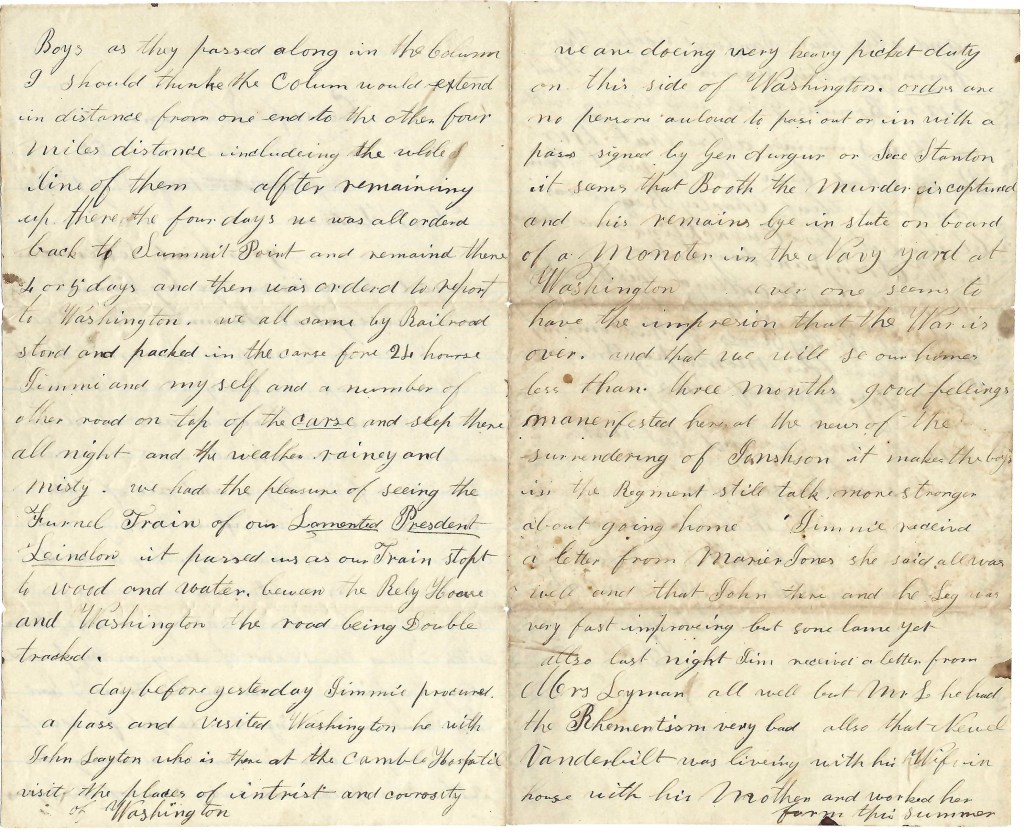 Boys as they passed along in the Column
I should thinke the Colum would extend
in distance from one end to the other four
miles distance includeing the whole
line of them affter remaineing
up there the four days we was all orderd
back to Summit Point and remaind there
4 or 5 days and then was orderd to report
to Washington. we all came by Railroad
stord and packed in the carse fore 24 hourse
Jimmie and my self and a number of
other road on top of the carse and slep there
all night and the weather rainey and
misty. we had the pleasure of seeing the
Furnel Train of our Lamented Presdent
Leincloln it passed us as our Train stopt
to wood and water. bewean the Rely House
and Washington the road being Double
tracked.
day before yesterday Jimmie procured
a pass and visited Washington he with
John Layton who is there at the Camble Hospatil
visit the places of intrist and couroosity
of Washington
we are doeing very heavy picket duty
on this side of Washington. ordrs are
no persone auloud to pass out or in with a
pass signed by Gen or Sece Stanton
it sams that Booth the Murder is captured
and his remains lye in state on board
of a Moniter in the Navy yard at
Washington ever one seems to
have the impresion that the War is
over. and that we will se our homes
less than three months good fellings
manenfested here at the news of the
surrendering of Jonshson it makes the boys
in the Regment still talk more stronger
about going home Jimmie receivd
a letter from Marier Jones she said all was
well and that John there and he Leg was
very fast improveing but some lame yet
also last night Jim receivd a letter from
Mrs Loyman all well but Mr L he had
the Rhementism very bad allso that Newel
Vanderbilt was liveing with his Wife in
house with his Mother and worked her
farm this summer